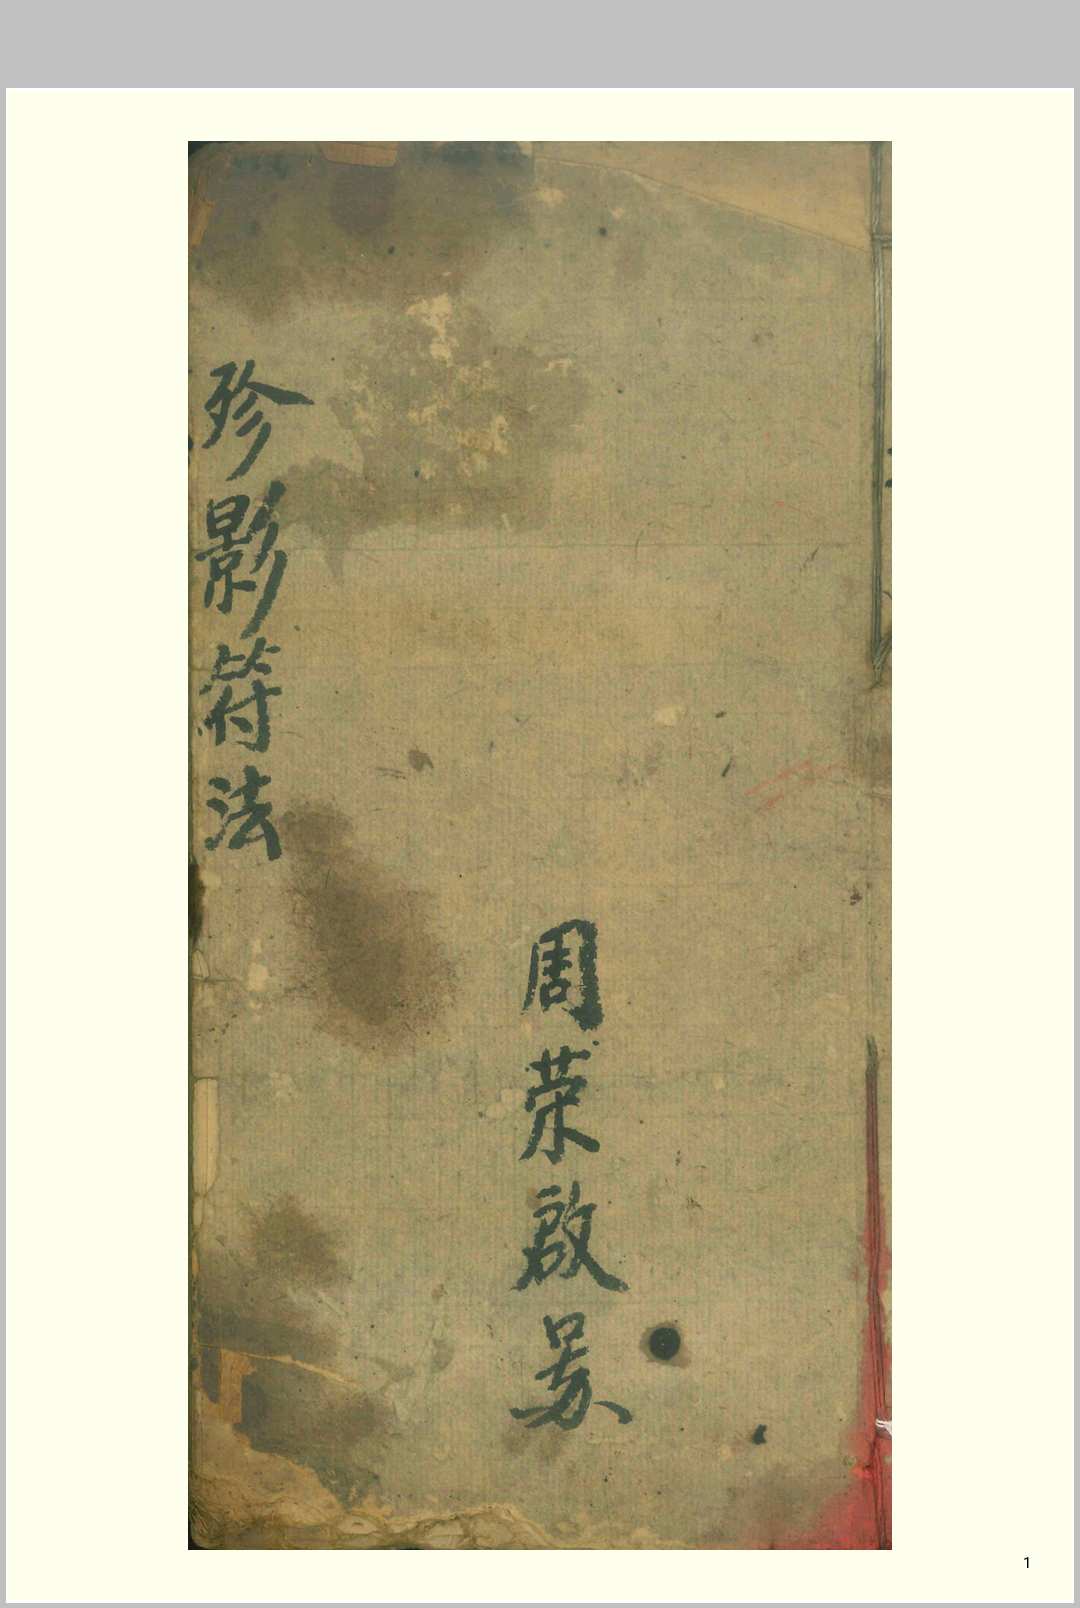 周荣啟
珍影符法
1